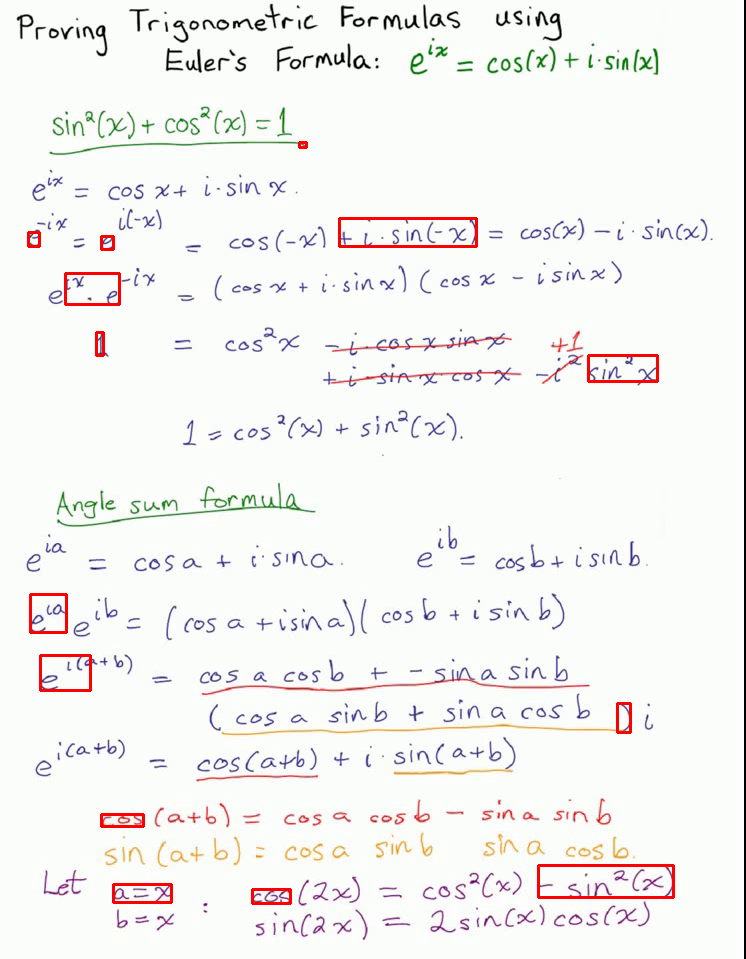 Proving Trigonometric Formulas using
Euler's Formula: e^{ix} = cos(x) + i·sin(x)
sin²(x) + cos²(x) = 1
e^{ix} = cos x + i·sin x.
e^{-ix} = e^{i(-x)} = cos(-x) + i·sin(-x) = cos(x) - i·sin(x).
e^{ix} · e^{-ix} = (cos x + i·sin x)(cos x - i sin x)
1 = cos²x - i·cos x sin x +1
+ i·sin x cos x - i² sin²x
1 = cos²(x) + sin²(x).
Angle sum formula
e^{ia} = cos a + i·sin a. e^{ib} = cos b + i sin b.
e^{ia} e^{ib} = (cos a + i sin a)(cos b + i sin b)
e^{i(a+b)} = cos a cos b + - sin a sin b
(cos a sin b + sin a cos b) i
e^{i(a+b)} = cos(a+b) + i·sin(a+b)
cos(a+b) = cos a cos b - sin a sin b
sin(a+b) = cos a sin b sin a cos b.
Let a = x : cos(2x) = cos²(x) - sin²(x)
b = x sin(2x) = 2 sin(x) cos(x)